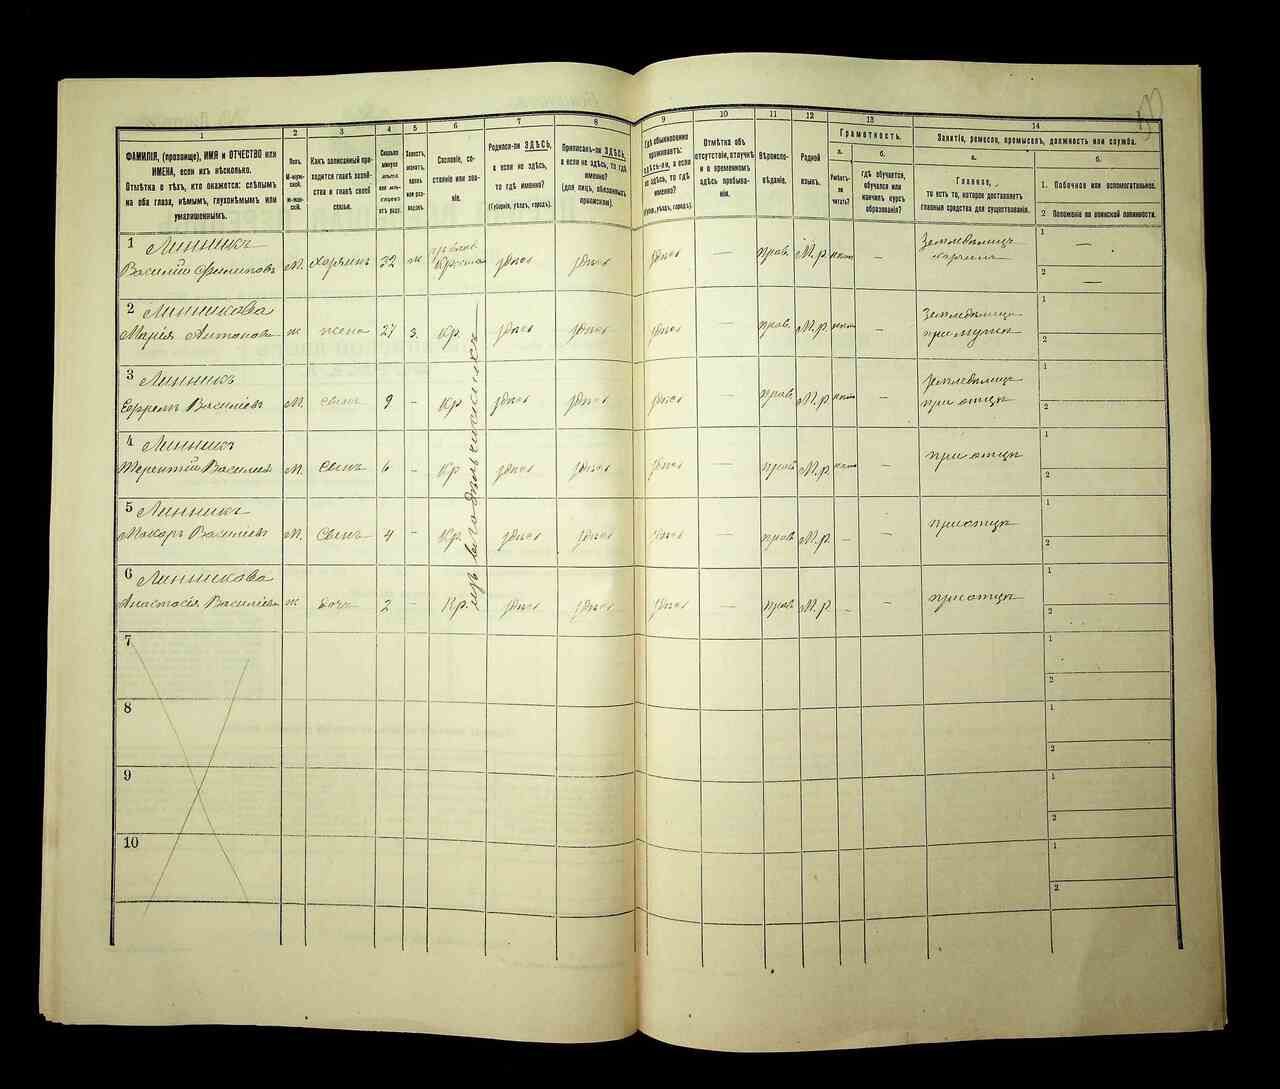 1
ФАМИЛІЯ, (прозвище), ИМЯ и ОТЧЕСТВО или
ИМЕНА, если ихъ нѣсколько.
Отмѣтка о тѣхъ, кто окажется: слѣпымъ
на оба глаза, нѣмымъ, глухонѣмымъ или
умалишеннымъ.
2
Полъ.
М-мужской.
Ж-женской.
3
Какъ записанный приходится
главѣ хозяйства
и главѣ своей
семьи.
4
Сколько
минуло
лѣтъ
5
Холостъ,
женатъ,
вдовъ
или разведенъ
6
Сословіе, состояніе
или званіе.
7
Родился-ли ЗДѢСЬ,
а если не здѣсь,
то гдѣ именно?
(Губернія, уѣздъ, городъ).
8
Приписанъ-ли ЗДѢСЬ,
а если не здѣсь, то гдѣ
именно?
(для лицъ, обязанныхъ
припискою).
9
Гдѣ обыкновенно
проживаетъ:
здѣсь-ли, а если
не здѣсь, то гдѣ
именно?
(Губ., уѣздъ, городъ).
10
Отмѣтка объ
отсутствіи, отлучкѣ
и о временномъ
здѣсь пребываніи.
11
Вѣроисповѣданіе.
12
Родной
языкъ.
13
Грамотность.
а.
Умѣетъ-ли
читать?
б.
гдѣ обучается,
обучался или
кончилъ курсъ
образованія?
14
Занятіе, ремесло, промыселъ, должность или служба.
а.
Главное,
то есть то, которое доставляетъ
главныя средства для существованія.
б.
1. Побочное или вспомогательное.
2 Положеніе по воинской повинности.
1 Линникъ
Василій Филиповъ М. хозяинъ 32 ж Кресть здѣсь здѣсь здѣсь — прав. М.р. нѣт — Земледѣлецъ
хозяинъ
1 —
2 —
2 Линникова
Марія Антонова ж жена 27 з. Кр. здѣсь здѣсь здѣсь — прав. М.р. нѣт — Земледѣлица
при мужѣ
1
2
3 Линникъ
Ефремъ Василіевъ М. сынъ 9 - Кр здѣсь здѣсь здѣсь — прав М.р нѣт — Земледѣлецъ
при отцѣ
1
2
4 Линникъ
Терентій Василіев М. сынъ 6 - Кр здѣсь здѣсь здѣсь — прав М.р нѣт — при отцѣ
1
2
5 Линникъ
Макаръ Василіевъ М. сынъ 4 - Кр. здѣсь здѣсь здѣсь — прав М.р. - - при отцѣ
1
2
6 Линникова
Анастасія Василіева ж дочь 2 - Кр. здѣсь здѣсь здѣсь — прав М.р. - - при отцѣ
1
2
7
1
2
8
1
2
9
1
2
10
1
2